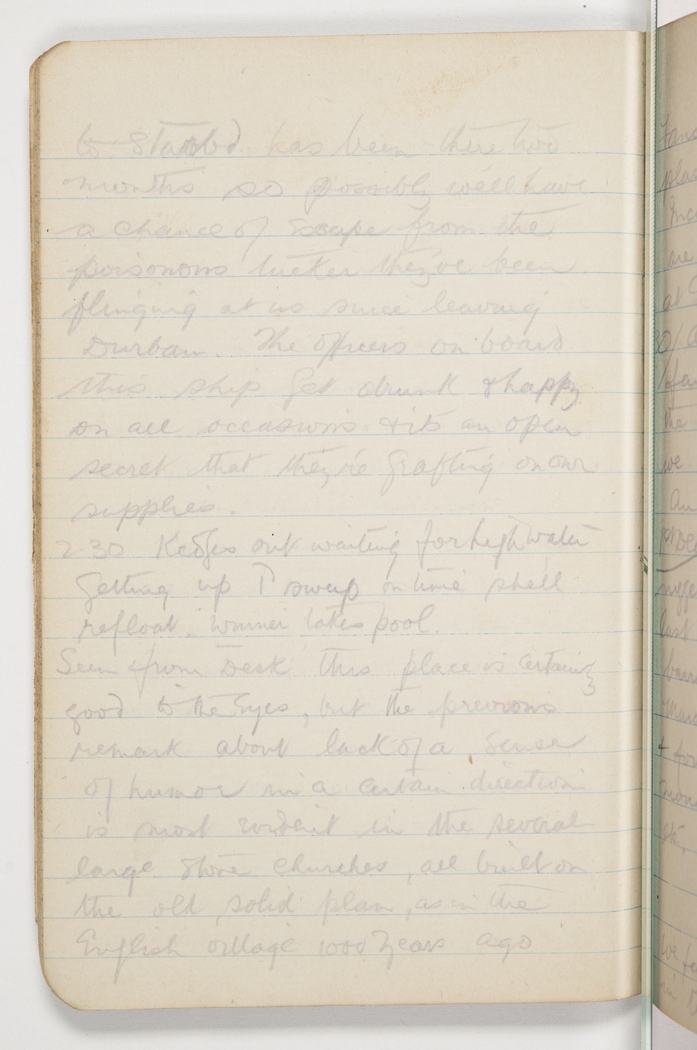 to Starbd. has been there two
months so possibly we'll have
a chance of escape from the
poisonous tucker they've been
flinging at us since leaving
Durban. The officers on board
this ship get drunk & happy
on all occasions & its an open
secret that they're grafting on our
supplies.
2.30 Kedges out waiting for high water
Getting up sweep on time shell
refloat. Winner takes pool.
Seen from Deck this place is certainly
good to the Eyes, but the previous
remark about lack of a sense
of humor in a certain direction
is most evident in the several
large stone churches, all built on
the old, solid plan, as in the
English village 1000 years ago